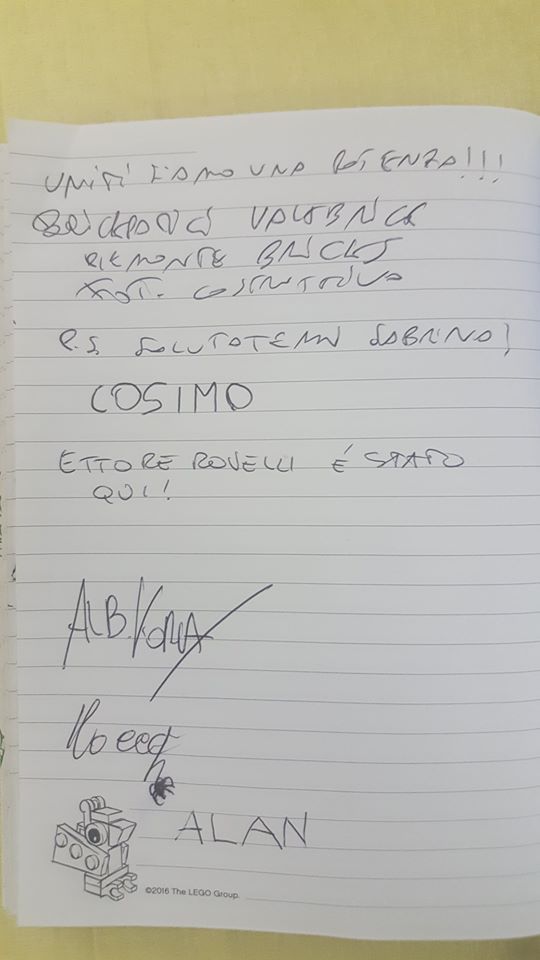 UNITI SIAMO UNA POTENZA!!!
BRICKPATICI VALEBRICK
PIEMONTE BRICKS
COSTRUTTIVO
P.S. SALUTATEMI SABRINA!
COSIMO
ETTORE ROVELLI É STATO
QUI!
ALB.
ALAN
©2016 The LEGO Group.